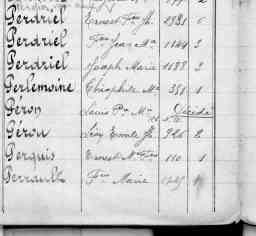 Perdriel Ernest Fçs Jh 2321 6
Perdriel Fçs Jean Mie 1144 3
Perdriel Joseph Marie 1188 2
Perlemoine Théophile Mie 351 1
Péron Louis Décédé
Pérou Emile Jh 926 2
Perquis Ernest 110 1
Perrault Fçs Marie